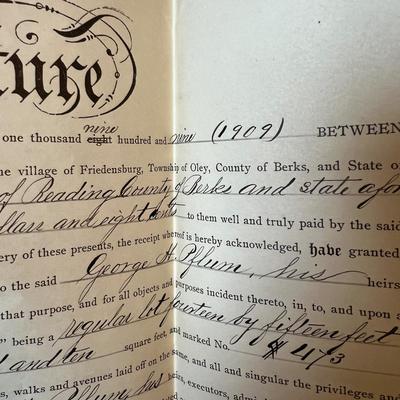 ture
one thousand eight nine hundred and nine (1909) BETWEEN
he village of Friedensburg, Township of Oley, County of Berks, and State of
of Reading County of Berks and state afor
llars and eight cents to them well and truly paid by the said
ery of these presents, the receipt whereof is hereby acknowledged, have granted
o the said George H. Pflum, his heirs
that purpose, and for all objects and purposes incident thereto, in, to, and upon a
" being a regular lot fourteen by fifteen feet
d and ten square feet, and marked No. 473
s, walks and avenues laid off on the same, and all and singular the privileges and
Pflum, his heirs, executors, admi